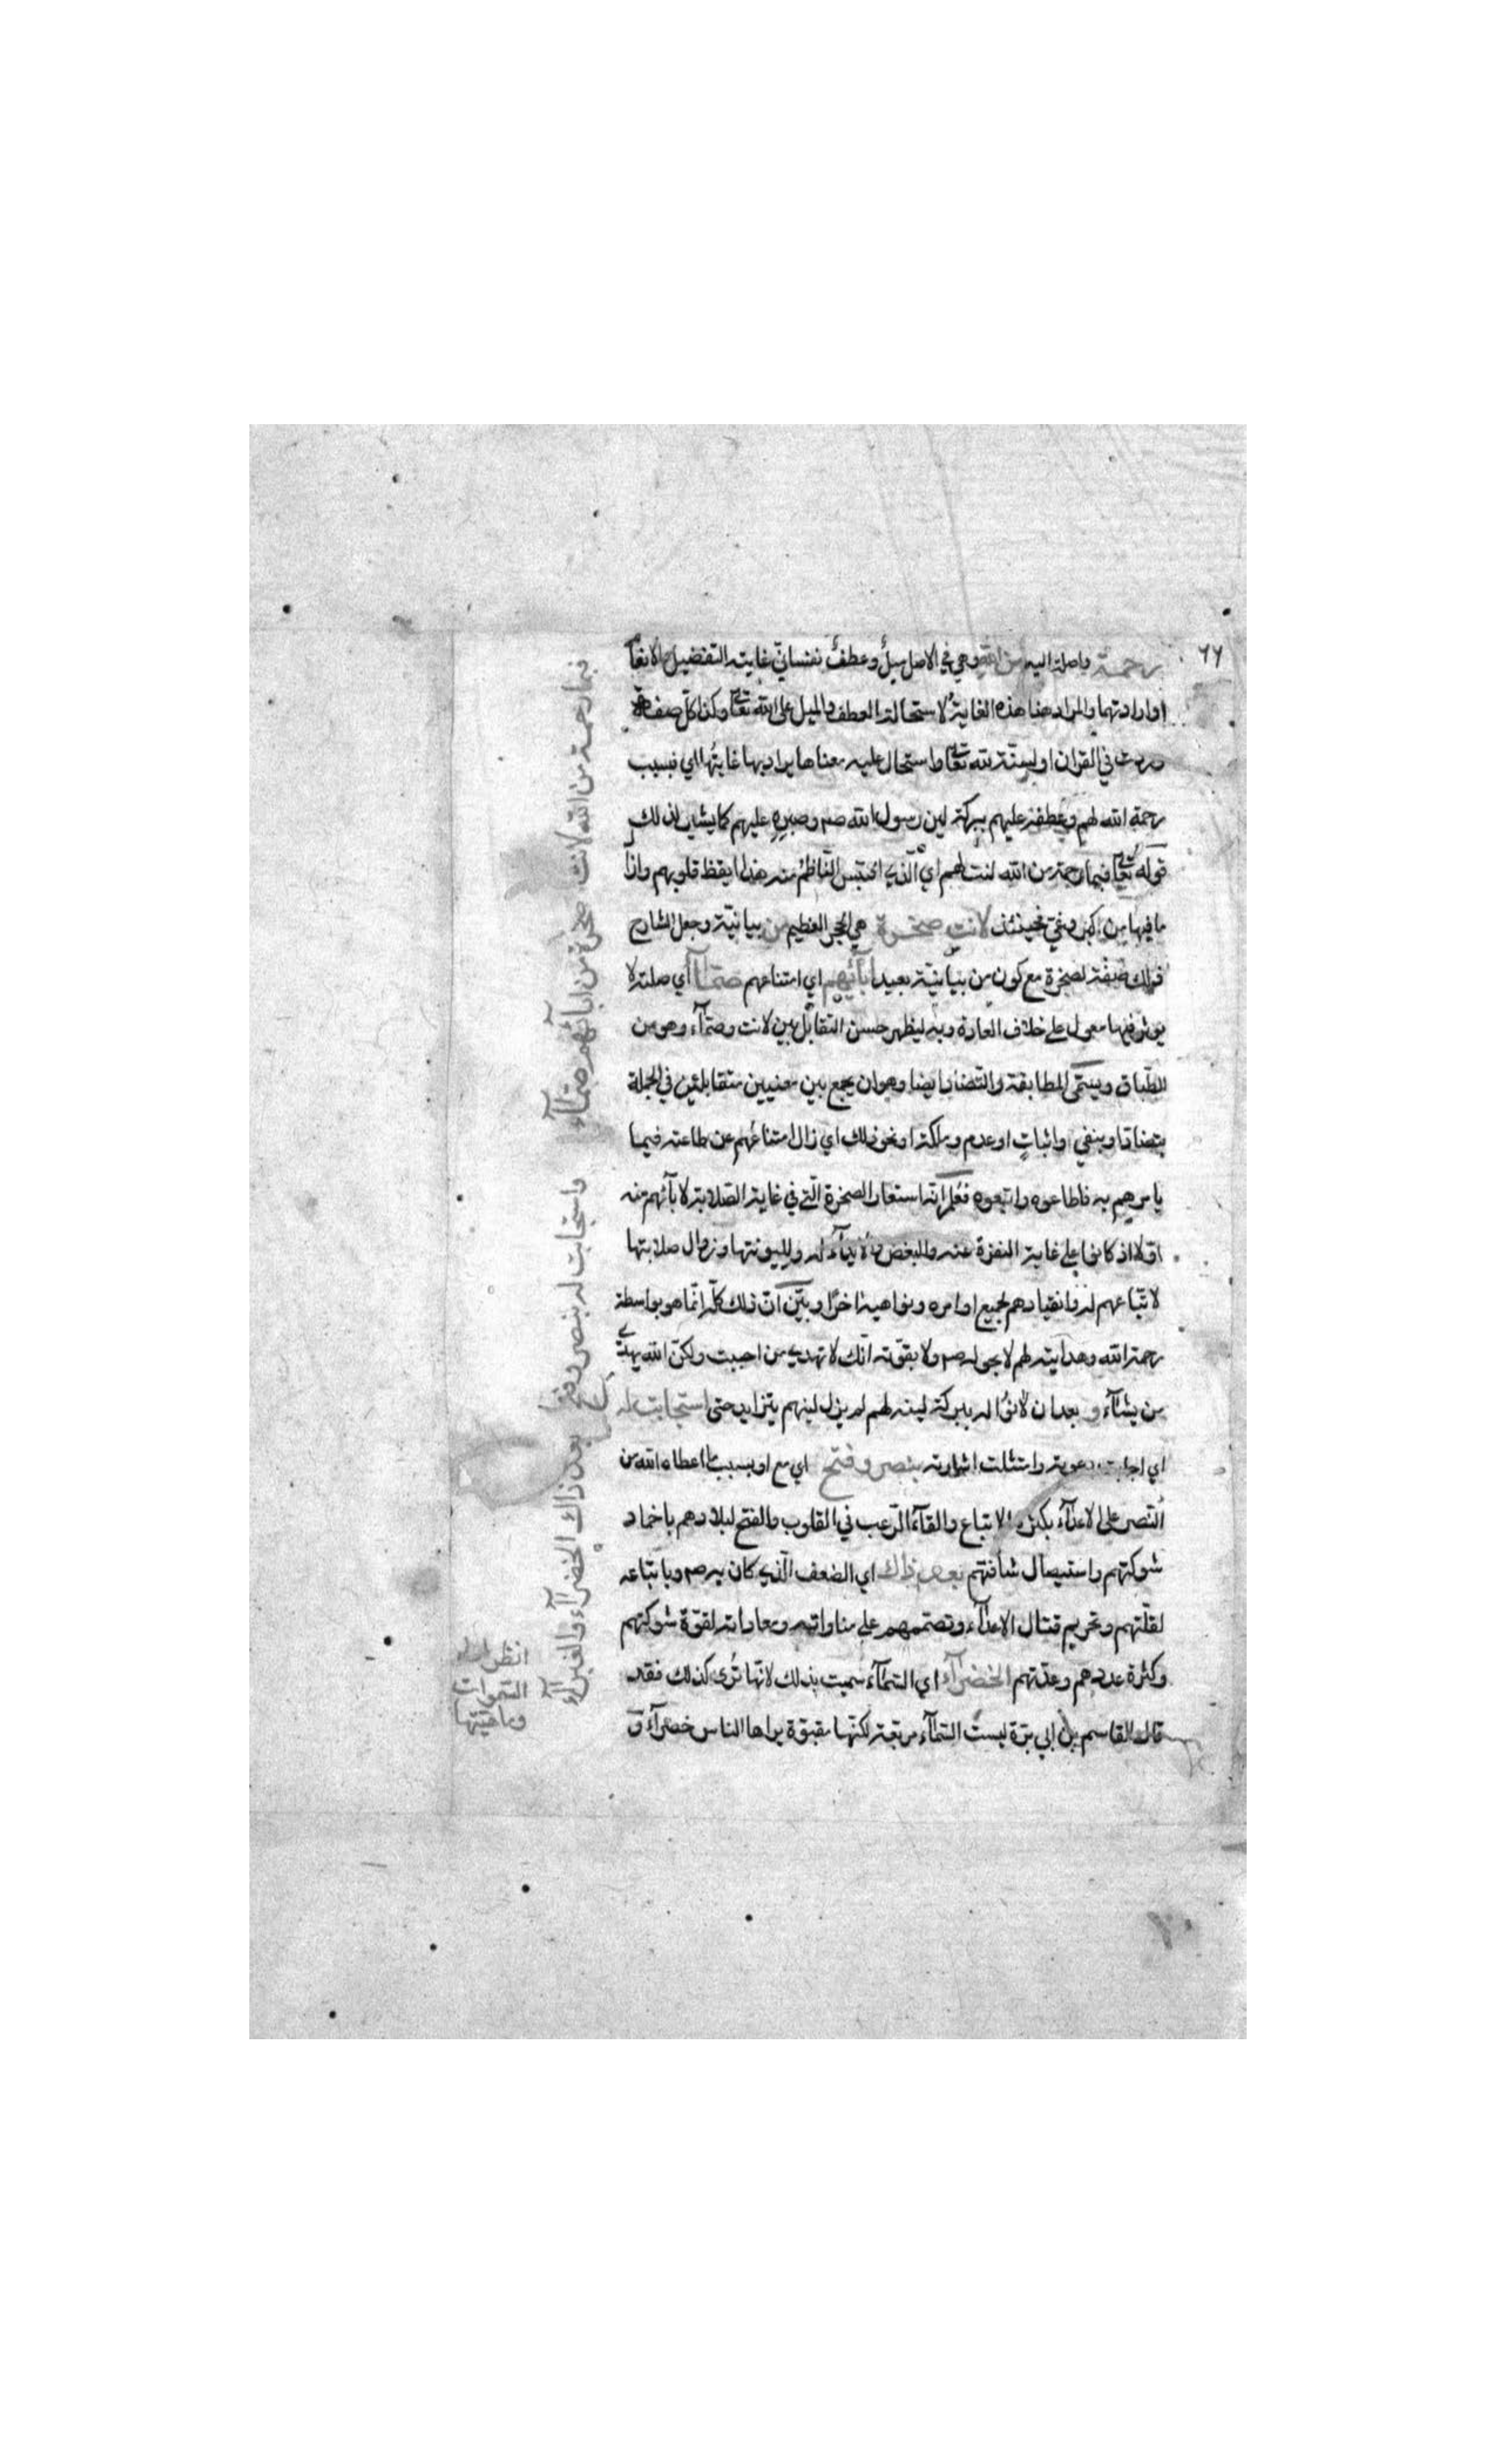 ٦٦
رحمة واصلة اليه من الله وهي في الاصل ميل وعطف نفساني غايته التفضيل والانعا
او ارادتهما والمراد هنا هذه الغاية لاستحالة العطف والميل على الله تعالى وكذا كل صفة
وردت في القران او السنة لله تعالى واستحال عليه معناها يراد بها غايتها اي فبسبب
رحمة الله لهم وعطفه عليهم ببركة لين رسول الله صم وصبره عليهم كما يشير لذلك
قوله تعالى فبما رحمة من الله لنت لهم اي الذي اقتبس الناظم منه هذا ايقظ قلوبهم وازال
ما فيها من كبر وغي فحينئذ لانت صخرة هي الحجر العظيم من بيانية وجعل الشارح
ذلك صفة لصخرة مع كون من بيانية بعيد ابائهم اي امتناعهم صماء اي صلته لا
يوثر فيها معول على خلاف العادة وبه ليظهر حسن التقابل بين لانت وصماء وهو من
الطباق ويسمى المطابقة والتضاد ايضا وهو ان يجمع بين معنيين متقابلين في الجملة
بتضاد او بنفي واثبات او عدم وملكة او نحو ذلك اي زال امتناعهم عن طاعته فيما
يامرهم به فاطاعوه واتبعوه فعلم انه استعار الصخرة التي في غاية الصلابة لابآئهم منه
اولا اذ كانوا على غاية النفرة عنه والبغض والايذاء له ولليونتها وزوال صلابتها
لاتباعهم له وانقيادهم لجميع اوامره ونواهيه اخرا وبين ان ذلك كله انما هو بواسطة
رحمة الله وهدايته لهم لا بحوله صم ولا بقوته انك لا تهدي من احببت ولكن الله يهدي
من يشآء و بعد ان لانوا له ببركة لينه لهم لم يزل لينهم يتزايد حتى استجابت له
اي اجابت دعوته وامتثلت اشارته بنصر وفتح اي مع او بسبب ما اعطاه الله من
النصر على الاعدآء بكثرة الاتباع والقآء الرعب في القلوب والفتح لبلادهم باخماد
شوكتهم واستيصال شأفتهم بعد ذاك اي الضعف الذي كان به صم وباتباعه
لقلتهم وتحريم قتال الاعدآء وتصممهم على مناواته ومعاداته لقوة شوكتهم
وكثرة عددهم وعدتهم الخضرآء اي السمآء سميت بذلك لانها ترى كذلك فقد
قال القاسم بن ابي بزة ليست السمآء مربعة لكنها مقبوة يراها الناس خضرآء ق
فبما رحمة من الله لانت صخرة من ابائهم صمآء
واستجابت له بنصر وفتح بعد ذاك الخضرآء والغبرآء
انظر
السموات
وما فيها